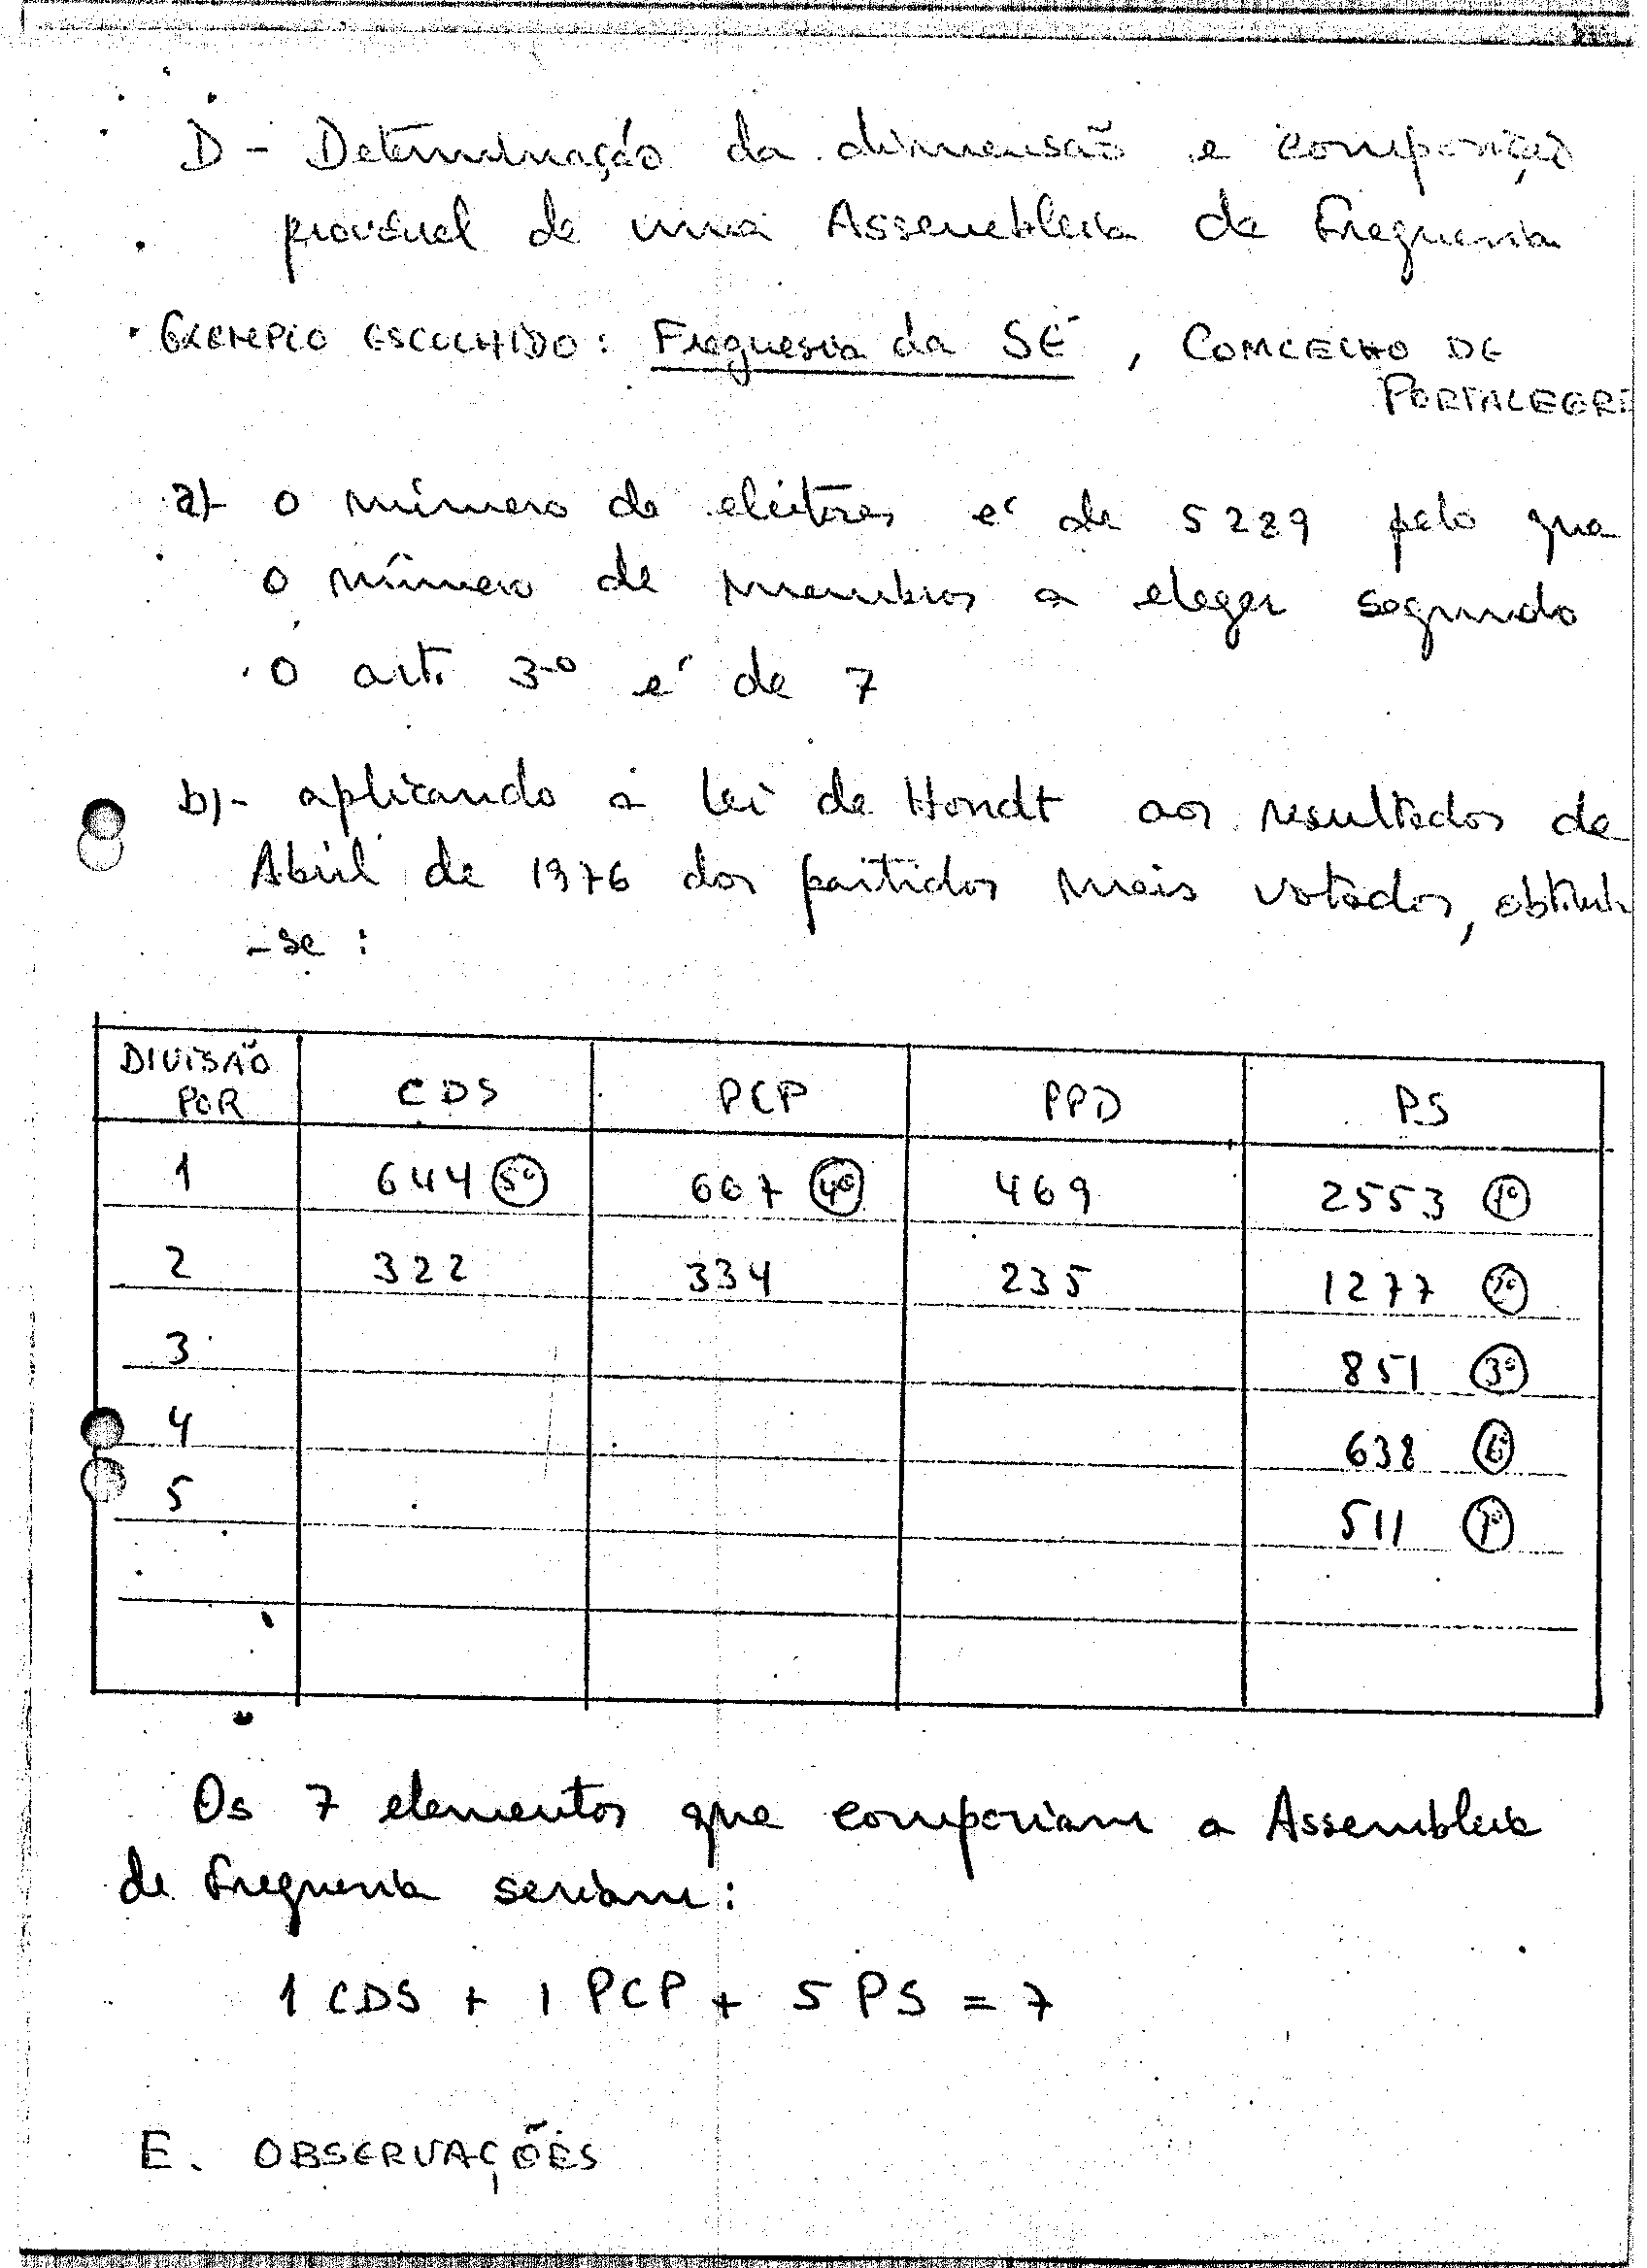 D - Determinação da dimensão e composição
provável de uma Assembleia de Freguesia
EXEMPLO ESCOLHIDO: Freguesia da SÉ, CONCELHO DE
PORTALEGRE
a)- O número de eleitores é de 5229 pelo que
o número de membros a eleger segundo
o art. 3º é de 7
b)- aplicando a lei de Hondt aos resultados de
Abril de 1976 dos partidos mais votados,
-se:
DIVISÃO POR CDS PCP PPD PS
1 644 5º 667 4º 469 2553 1º
2 322 334 235 1277 2º
3 851 3º
4 638 6º
5 511 7º
Os 7 elementos que comporiam a Assembleia
de Freguesia seriam:
1 CDS + 1 PCP + 5 PS = 7
E. OBSERVAÇÕES